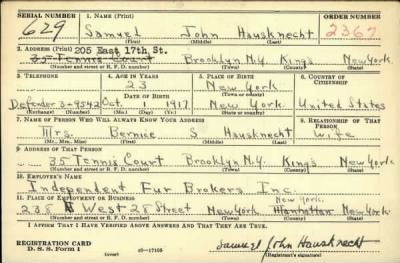 SERIAL NUMBER 1. NAME (Print) ORDER NUMBER
629 Samuel John Hausknecht 2367
(First) (Middle) (Last)
2. ADDRESS (Print) 205 East 17th St.
35 Tennis Court Brooklyn N.Y. Kings New York
(Number and street or R. F. D. number) (Town) (County) (State)
3. TELEPHONE 4. AGE IN YEARS 5. PLACE OF BIRTH 6. COUNTRY OF CITIZENSHIP
23 New York
DATE OF BIRTH (Town or county)
Defender 3-9542 Oct. 1 1917 New York United States
(Exchange) (Number) (Mo.) (Day) (Yr.) (State or country)
7. NAME OF PERSON WHO WILL ALWAYS KNOW YOUR ADDRESS 8. RELATIONSHIP OF THAT PERSON
Mrs. Bernice S Hausknecht Wife
(Mr., Mrs., Miss) (First) (Middle) (Last)
9. ADDRESS OF THAT PERSON
35 Tennis Court Brooklyn N.Y. Kings New York
(Number and street or R. F. D. number) (Town) (County) (State)
10. EMPLOYER'S NAME
Independent Fur Brokers Inc.
11. PLACE OF EMPLOYMENT OR BUSINESS New York
238 West 28 Street New York Manhattan New York
(Number and street or R. F. D. number) (Town) (County) (State)
I AFFIRM THAT I HAVE VERIFIED ABOVE ANSWERS AND THAT THEY ARE TRUE.
REGISTRATION CARD
D. S. S. Form 1 (over) 16-17105 Samuel John Hausknecht
(Registrant's signature)